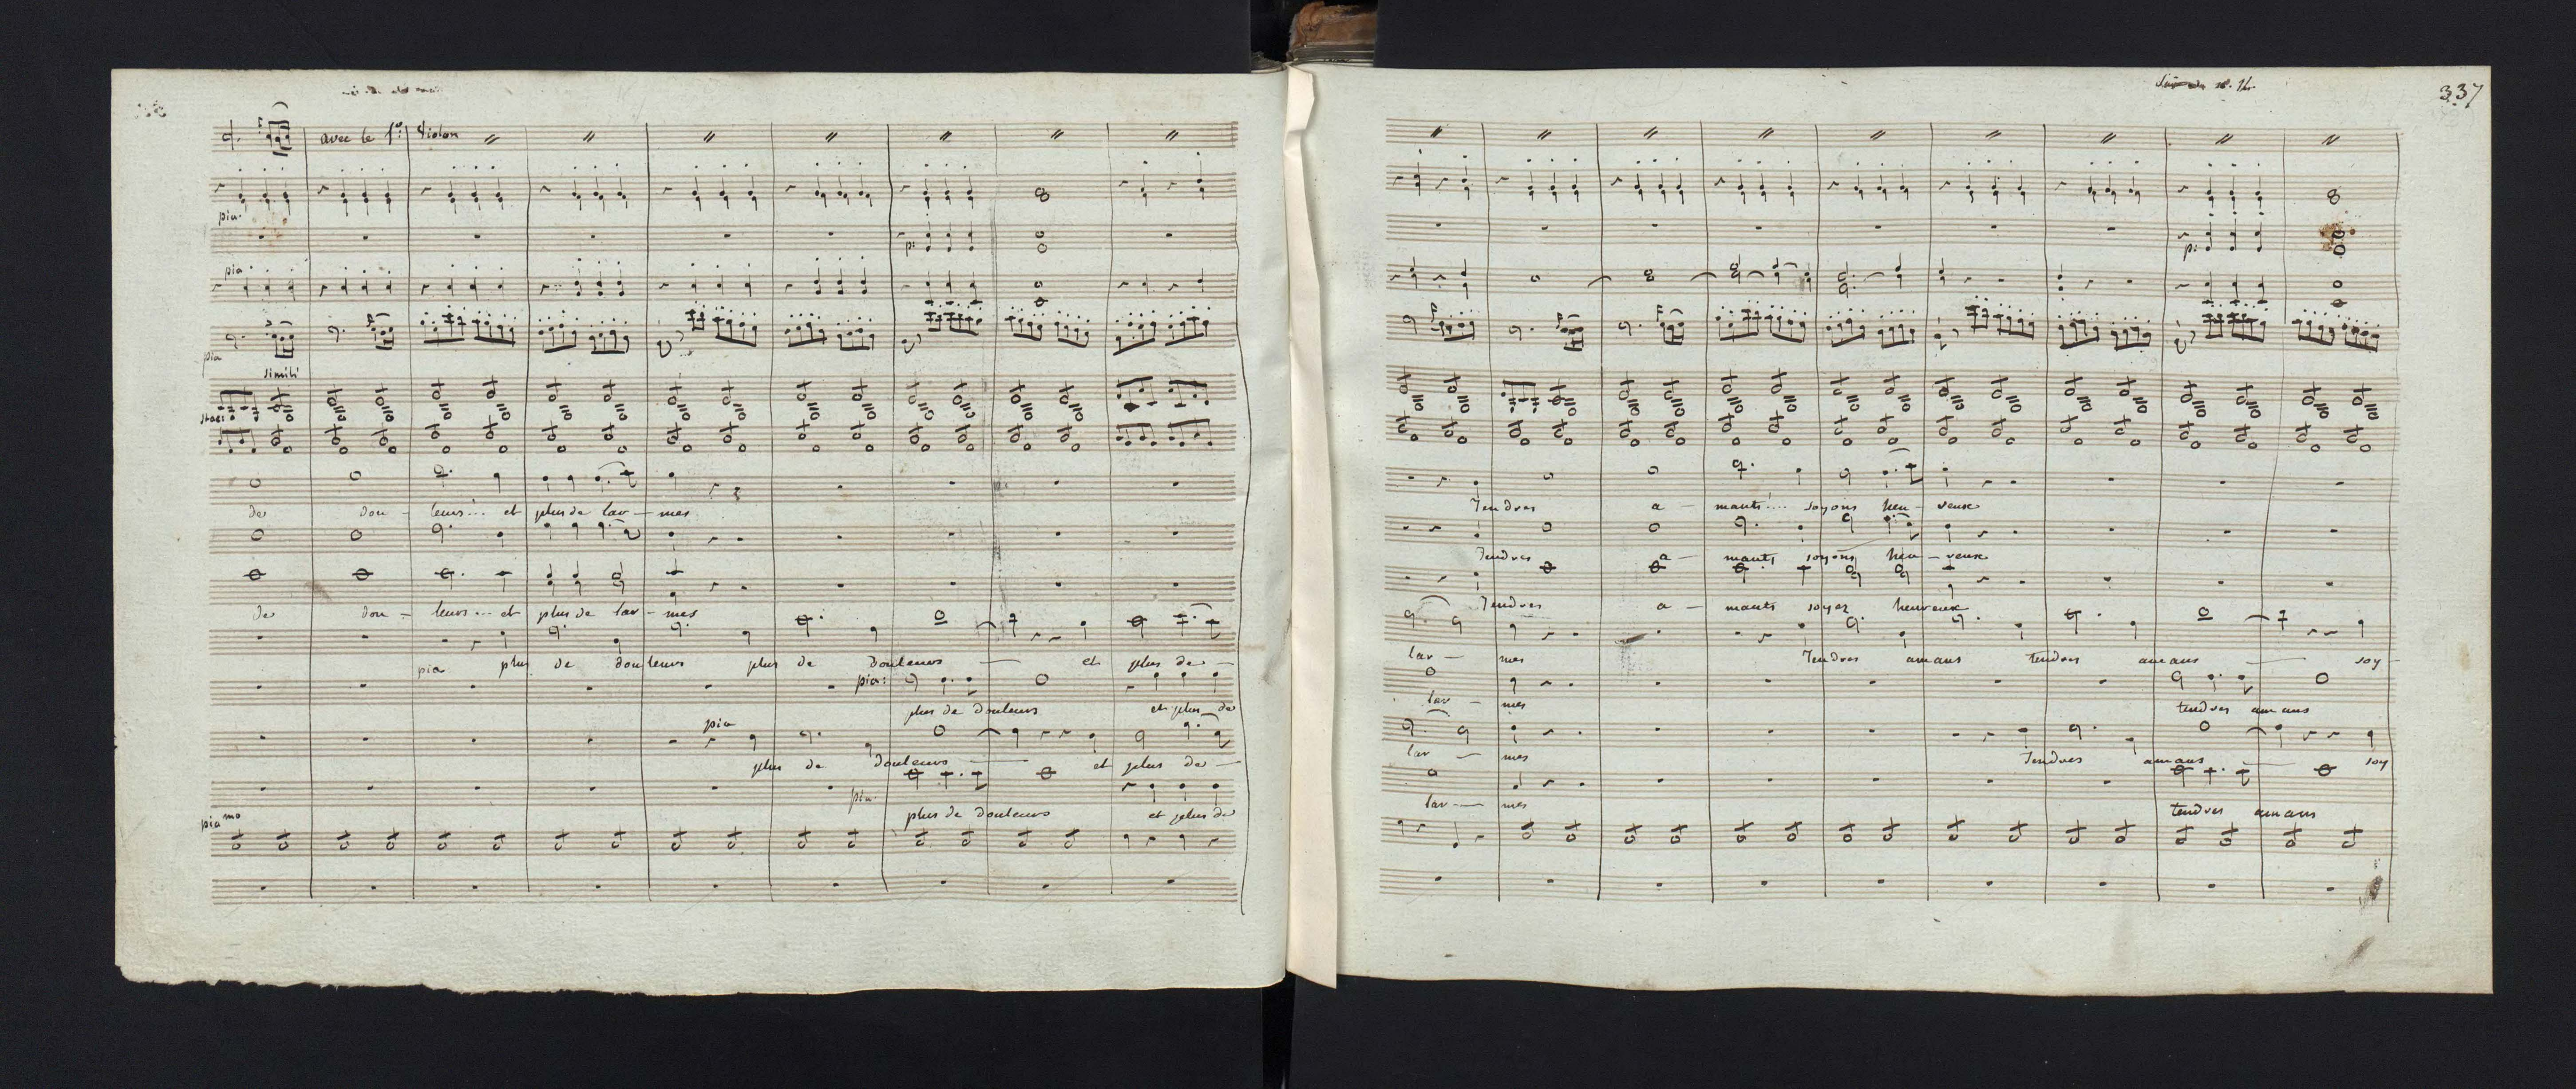 avec le 1º: Violon
pia.
p:
pia
pia
simili
stacc
de dou - leurs... et plus de lar - mes
de dou - leurs... et plus de lar - mes
pia plus de douleurs plus de douleurs - et plus de -
pia:
plus de douleurs et plus de
pia
plus de douleurs - et plus de -
pia
plus de douleurs et plus de
piamo
337
p:
Tendres a - mants.... soyons heu - reux
Tendres a - mants soyons heu - reux
Tendres a - mants soyez heureux
lar - mes Tendres amans tendres amans - soy -
lar - mes tendres amans
lar - mes Tendres amans - soy
lar - mes tendres amans